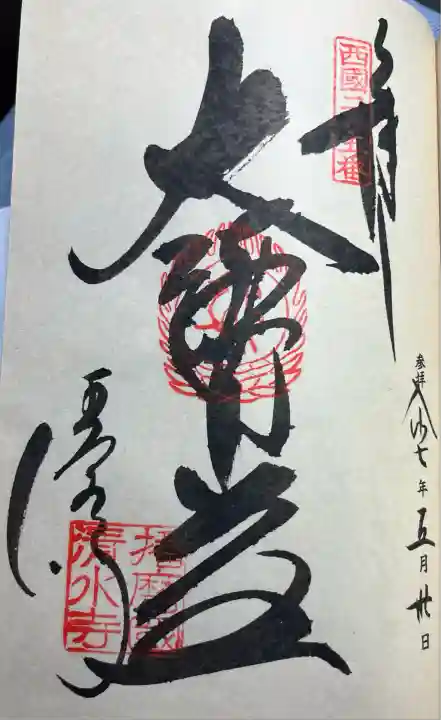 奉拝
西國二十五番
大講堂
播磨國
清水寺
参拝 令和七年五月卅日